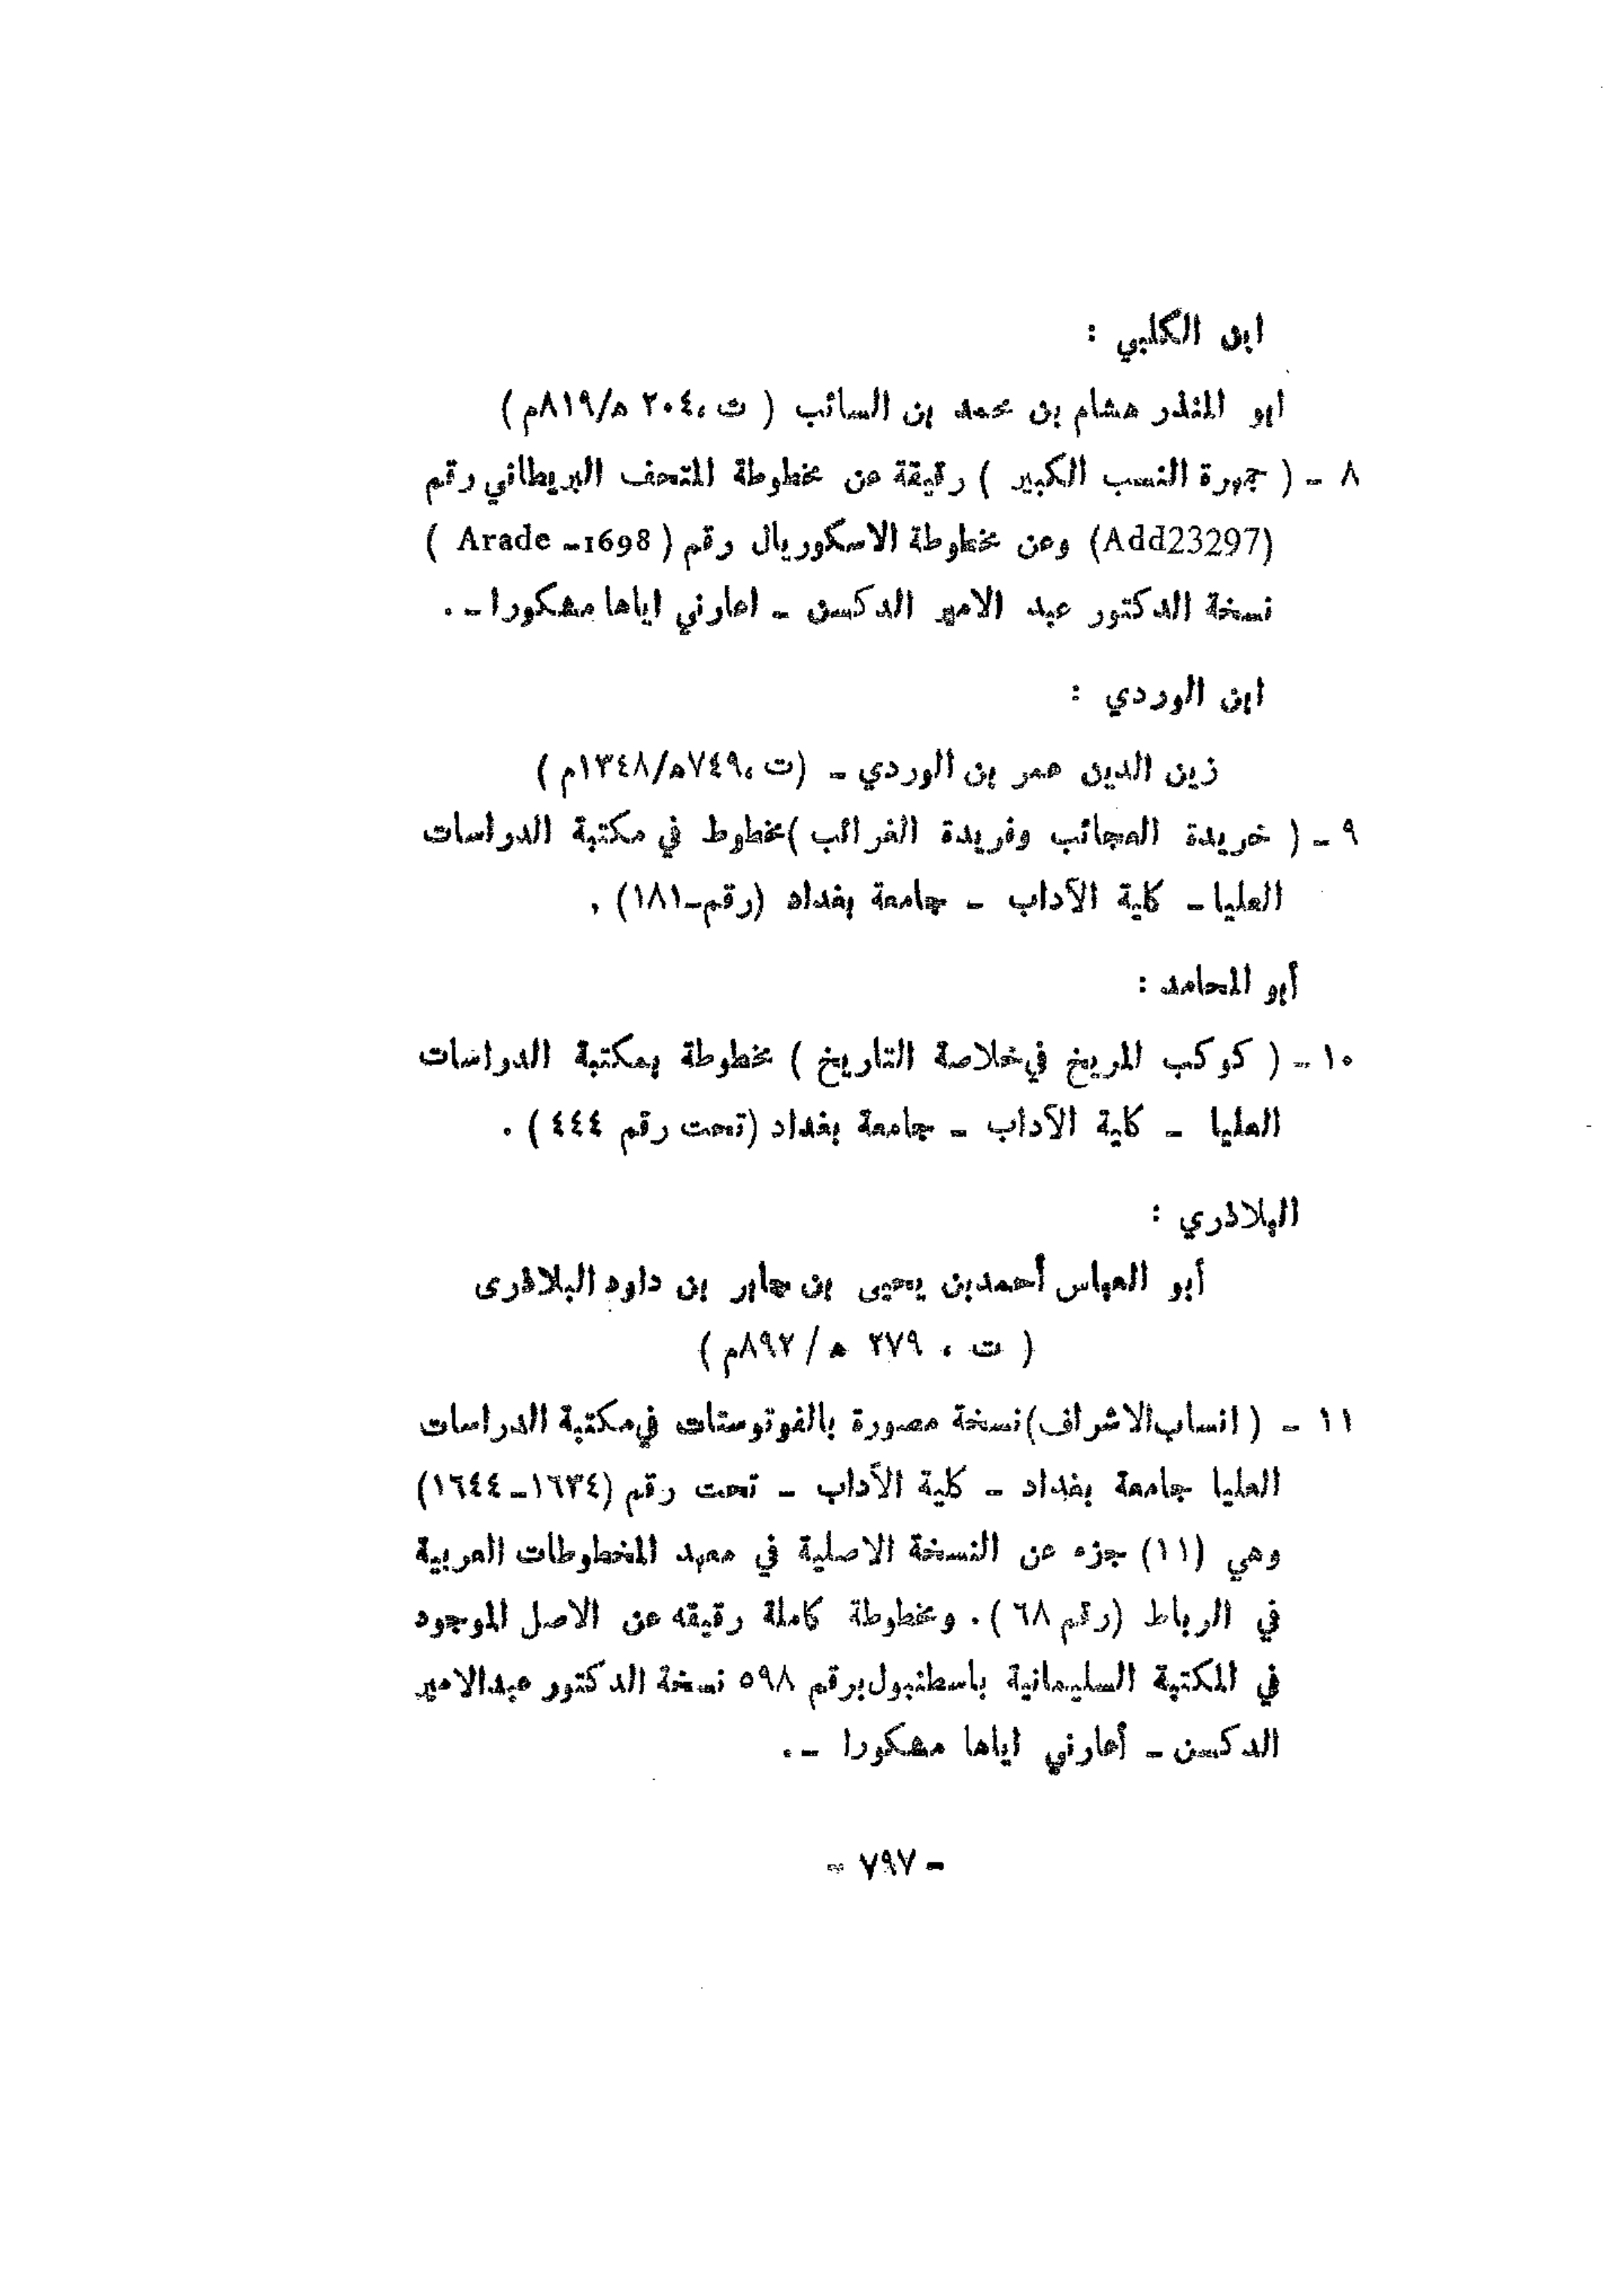 ابن الكلبي :
ابو المنذر هشام بن محمد بن السائب ( ت ،٢٠٤ ه/٨١٩م )
٨ - ( جمهرة النسب الكبير ) رقيقة عن مخطوطة المتحف البريطاني رقم
(Add23297) وعن مخطوطة الاسكوريال رقم ( Arade -1698 )
نسخة الدكتور عبد الامير الدكسن - اعارني اياها مشكورا - .
ابن الوردي :
زين الدين عمر بن الوردي - (ت ،٧٤٩ه/١٣٤٨م )
٩ - ( خريدة العجائب وفريدة الغرائب )مخطوط في مكتبة الدراسات
العليا - كلية الآداب - جامعة بغداد (رقم-١٨١) .
أبو المحامد :
١٠ - ( كوكب المريخ في خلاصة التاريخ ) مخطوطة بمكتبة الدراسات
العليا - كلية الآداب - جامعة بغداد (تحت رقم ٤٤٤ ) .
البلاذري :
أبو العباس أحمدبن يحيى بن جابر بن داود البلاذرى
( ت ، ٢٧٩ ه / ٨٩٢م )
١١ - ( انساب الاشراف)نسخة مصورة بالفوتوستات في مكتبة الدراسات
العليا جامعة بغداد - كلية الآداب - تحت رقم (١٦٣٤-١٦٤٤)
وهي (١١) جزء عن النسخة الاصلية في معهد المخطوطات العربية
في الرباط (رقم ٦٨ ) . ومخطوطة كاملة رقيقه عن الاصل الموجود
في المكتبة السليمانية باسطنبول برقم ٥٩٨ نسخة الدكتور عبدالامير
الدكسن - أعارني اياها مشكورا - .
- ٧٩٧ -